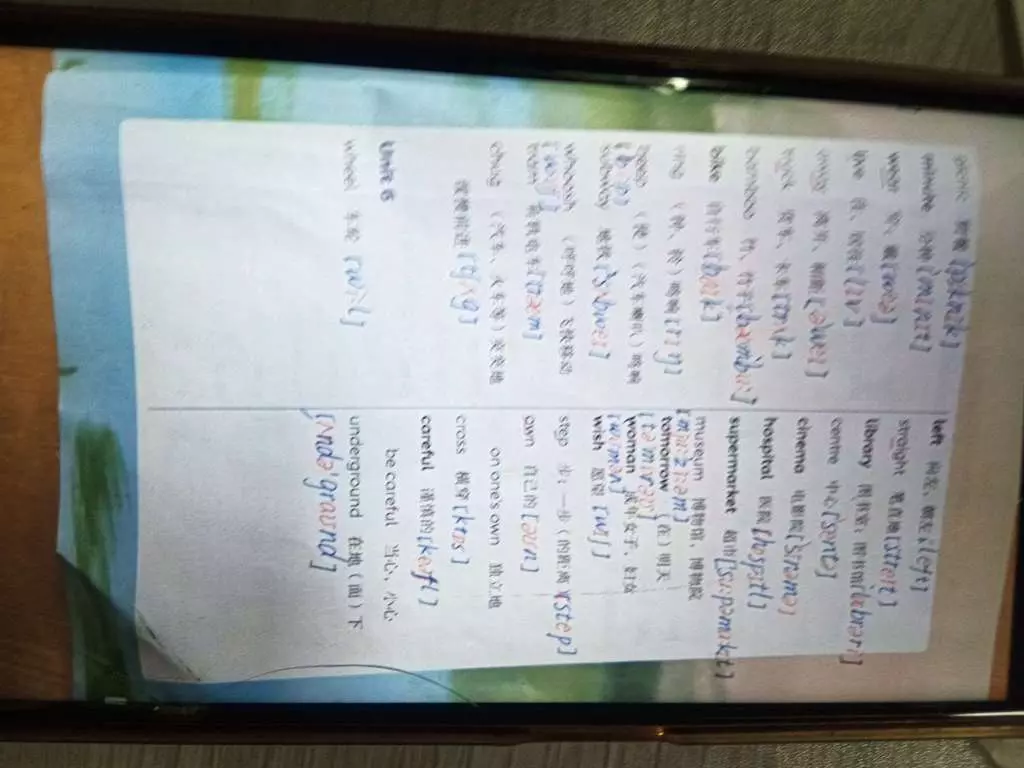 picnic 野餐 ['pɪknɪk]
minute 分钟 ['mɪnɪt]
wear 穿；戴 [weə]
live 住，居住 [lɪv]
away 离开，
truck 货车，卡车 [trʌk]
bamboo 竹，竹子 [bæm'bu:]
bike 自行车 [baɪk]
ring （钟、铃）鸣响 [rɪŋ]
beep （使）（汽车喇叭）鸣响
[bi:p]
subway 地铁 ['sʌbweɪ]
whoosh （呼呼地）飞快移动
[wuʃ]
tram 有轨电车 [træm]
chug （汽车、火车等）突突地
缓慢前进
Unit 6
wheel 车轮 [wi:l]
left 向左，朝左 [left]
straight 笔直地 [streɪt]
library 图书室；图书馆 ['laɪbrəri]
centre 中心 ['sentə]
cinema 电影院
hospital 医院 ['hɒspɪtl]
supermarket 超市
museum 博物馆，博物院
[mju:'zi:əm]
tomorrow （在）明天
woman 成年女子，妇女
['wʊmən]
wish 愿望 [wɪʃ]
step 步；一步（的距离）[step]
own 自己的 [əʊn]
on one's own 独立地
cross 横穿 [krɒs]
careful 谨慎的
be careful 当心，小心
underground 在地（面）下
[ʌndə'graʊnd]